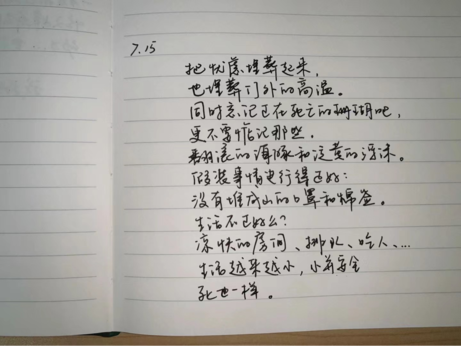 7.15
把忧虑埋葬起来，
也埋葬门外的高温。
同时忘记正在死亡的珊瑚吧，
更不要惦记那些，
翻滚的海豚和泛黄的浮沫。
假装事情进行得还好：
没有堆成山的口罩和棉签。
生活不还好么？
凉快的房间、排队、吃人、...
生活越来越小，小若安全
死也一样。